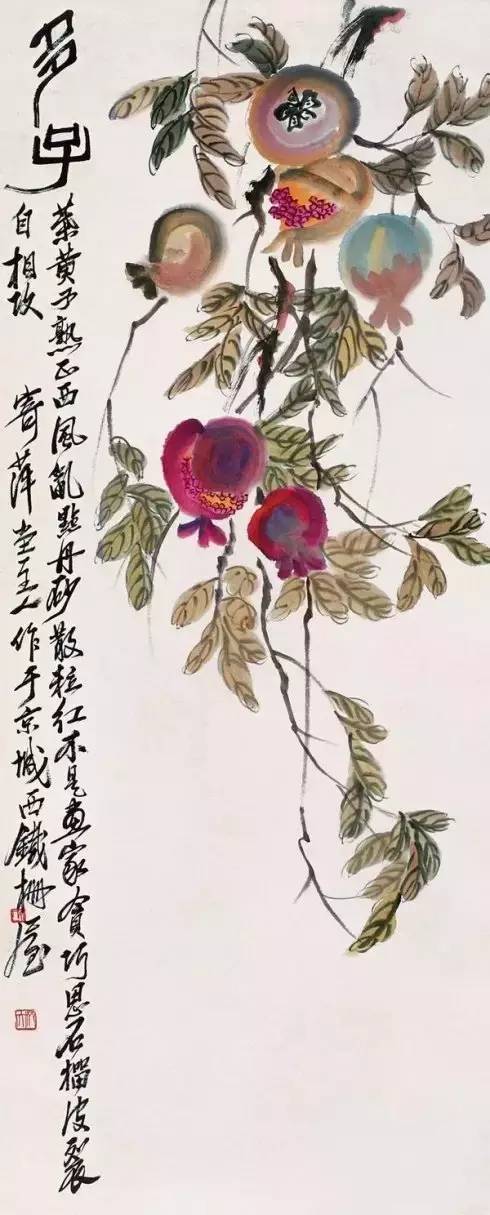 多子
葉黃子熟正西風亂點丹砂散粒红不是畫家巧思石榴皮裂
自相攻
寄萍堂主人作于京城西鐵柵屋